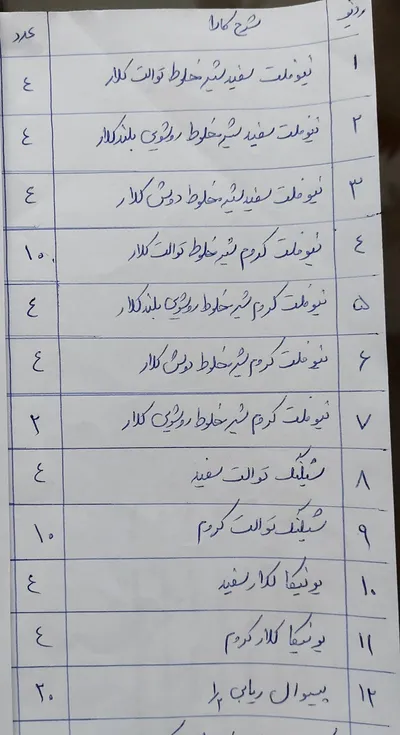 ردیف شرح کالا عدد
۱ نیوفلت سفید شیر مخلوط توالت کلار ٤
۲ نیوفلت سفید شیر مخلوط روشویی بلند کلار ٤
۳ نیوفلت سفید شیر مخلوط دوش کلار ٤
٤ نیوفلت کروم شیر مخلوط توالت کلار ۱۰
۵ نیوفلت کروم شیر مخلوط روشویی بلند کلار ٤
۶ نیوفلت کروم شیر مخلوط دوش کلار ٤
۷ نیوفلت کروم شیر مخلوط روشویی کلار ۲
۸ شیلنگ توالت سفید ٤
۹ شیلنگ توالت کروم ۱۰
۱۰ یونیکا کلار سفید ٤
۱۱ یونیکا کلار کروم ٤
۱۲ پیسوال ریابی ۱/۲ ۲۰